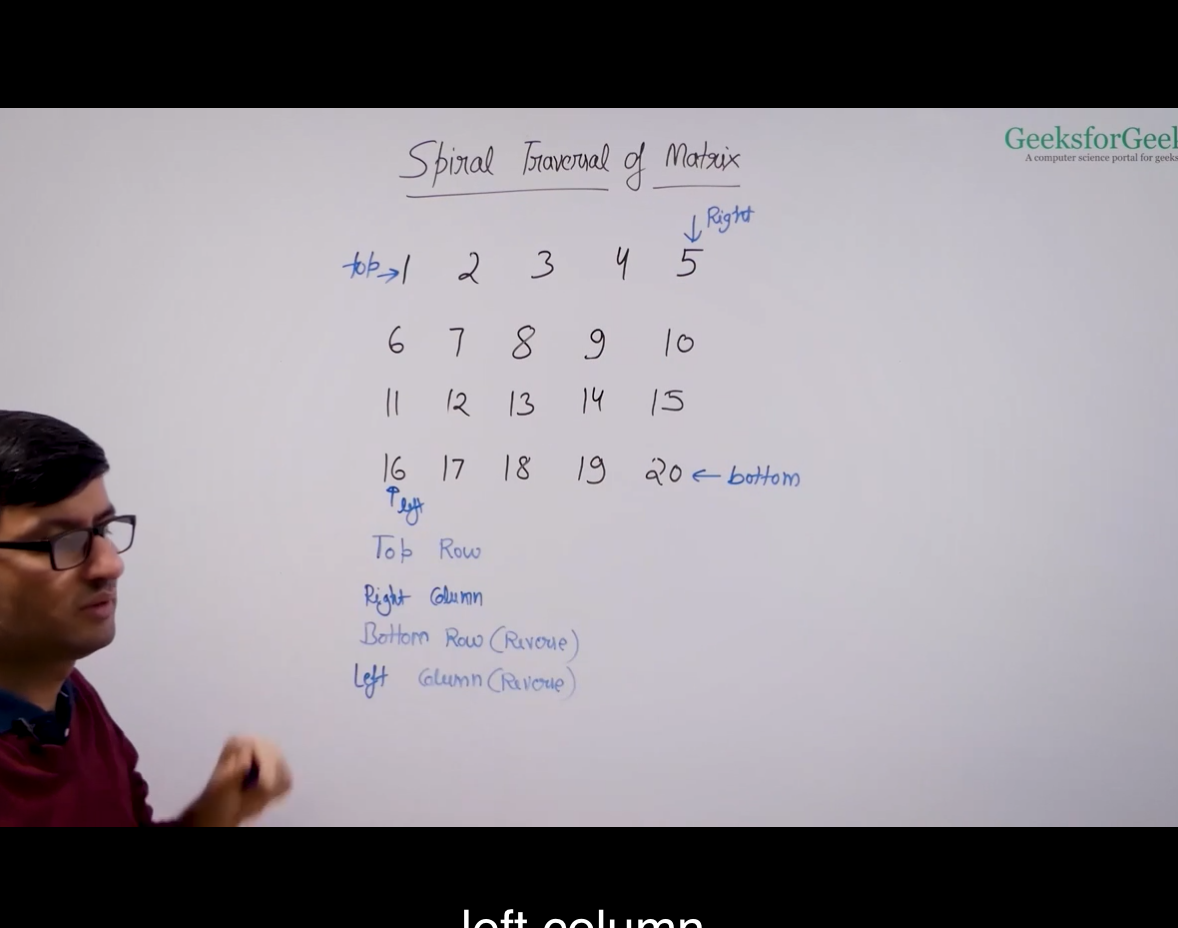 GeeksforGeek
A computer science portal for geeks
Spiral Traversal of Matrix
Right
top 1 2 3 4 5
6 7 8 9 10
11 12 13 14 15
16 17 18 19 20 ← bottom
left
Top Row
Right Column
Bottom Row (Reverse)
Left Column (Reverse)
left column